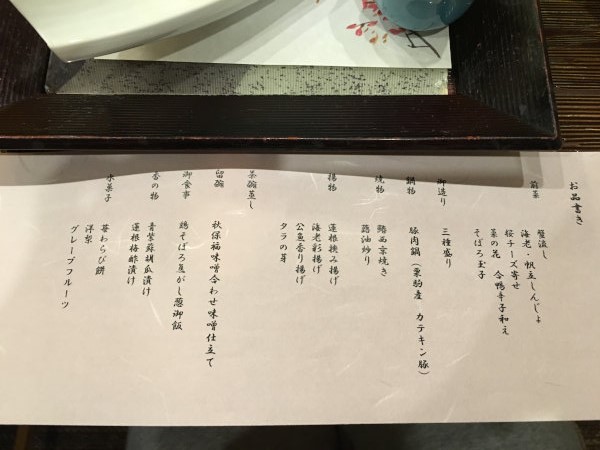 お品書き
前菜
蟹流し
海老・帆立しんじょ
桜チーズ寄せ
菜の花 合鴨辛子和え
そぼろ玉子
御造り
三種盛り
鍋物
豚肉鍋(栗駒産 カテキン豚)
焼物
鰆西京焼き
醤油炒り
揚物
蓮根挟み揚げ
海老彩揚げ
公魚香り揚げ
タラの芽
茶碗蒸し
留椀
秋保福味噌合わせ味噌仕立て
御食事
鶏そぼろ焦がし葱御飯
香の物
青紫蘇胡瓜漬け
蓮根梅酢漬け
水菓子
苺わらび餅
洋梨
グレープフルーツ